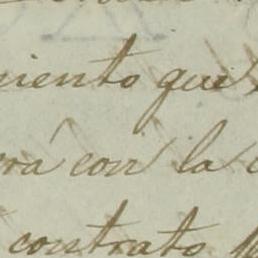 miento que
rá con la
contrato